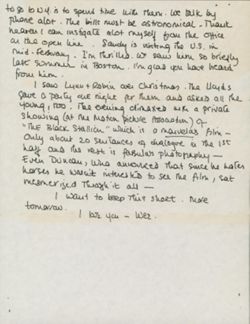 to go to N.Y. is to spend time with them. We talk by
phone alot. The bills must be astronomical. Thank
heavens I can instigate alot myself from the office
on the open line. Sandy is visiting the U.S. in
mid-February. I'm thrilled. We saw him so briefly
late summer in Boston. I'm glad you have heard
from him.
I saw Lynn & Robin over Christmas. The Lloyds
gave a party one night for them and asked all the
young, too. The evening included a private
showing (at the Motion picture Association) of
"THE Black Stallion" which is a marvelous film -
only about 20 sentences of dialogue in the 1st
half and the rest is fabulous photography -
Even Duncan, who announced that since he hates
horses he wasn't interested to see the film, sat
mesmerized through it all -
I want to keep this short. More
tomorrow.
I love you -